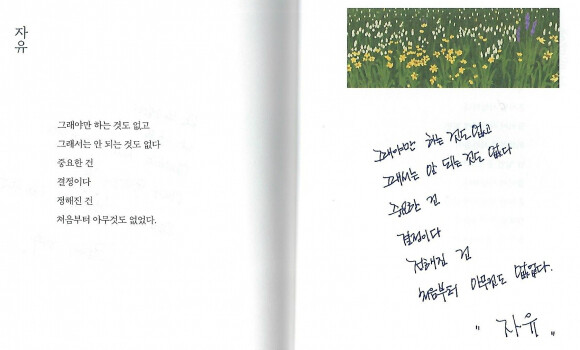 자유
그래야만 하는 것도 없고
그래서는 안 되는 것도 없다
중요한 건
결정이다
정해진 건
처음부터 아무것도 없었다.
그래야만 하는 것도 없고
그래서는 안 되는 것도 없다
중요한 건
결정이다
정해진 건
처음부터 아무것도 없었다.
" 자유 "